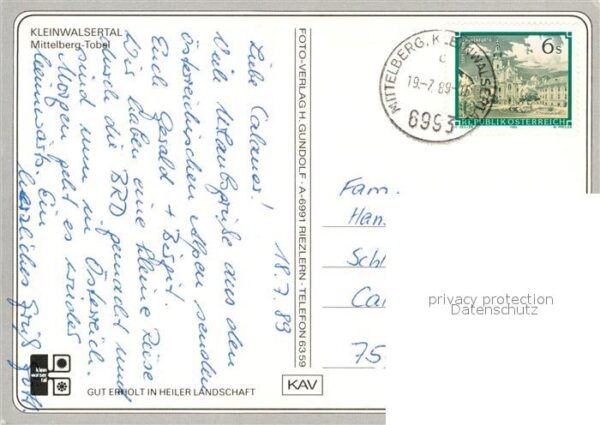 KLEINWALSERTAL
Mittelberg-Tobel
18.7.89
Liebe Calauer!
Viele Urlaubsgrüße aus den
österreichischen Alpen senden
Euch Gerald + Birgit.
Wir haben eine kleine Reise
durch die BRD gemacht und
sind nun in Österreich.
Morgen geht es wieder
heimwärts. Ein
herzliches Grüß Gott
GUT ERHOLT IN HEILER LANDSCHAFT
FOTO-VERLAG H. GUNDOLF · A-6991 RIEZLERN · TELEFON 6359
KAV
MITTELBERG, KLEINWALSERT
c
19.-7.89
6993
6 S
REPUBLIK ÖSTERREICH
Fam.
Han
Schl
Ca
75
privacy protection
Datenschutz